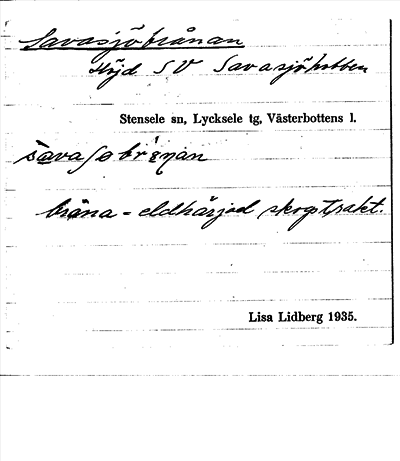 Savasjöbrånan
Höjd SV Savasjökobben
Stensele sn, Lycksele tg, Västerbottens l.
bråna = eldhärjad skogstrakt.
Lisa Lidberg 1935.